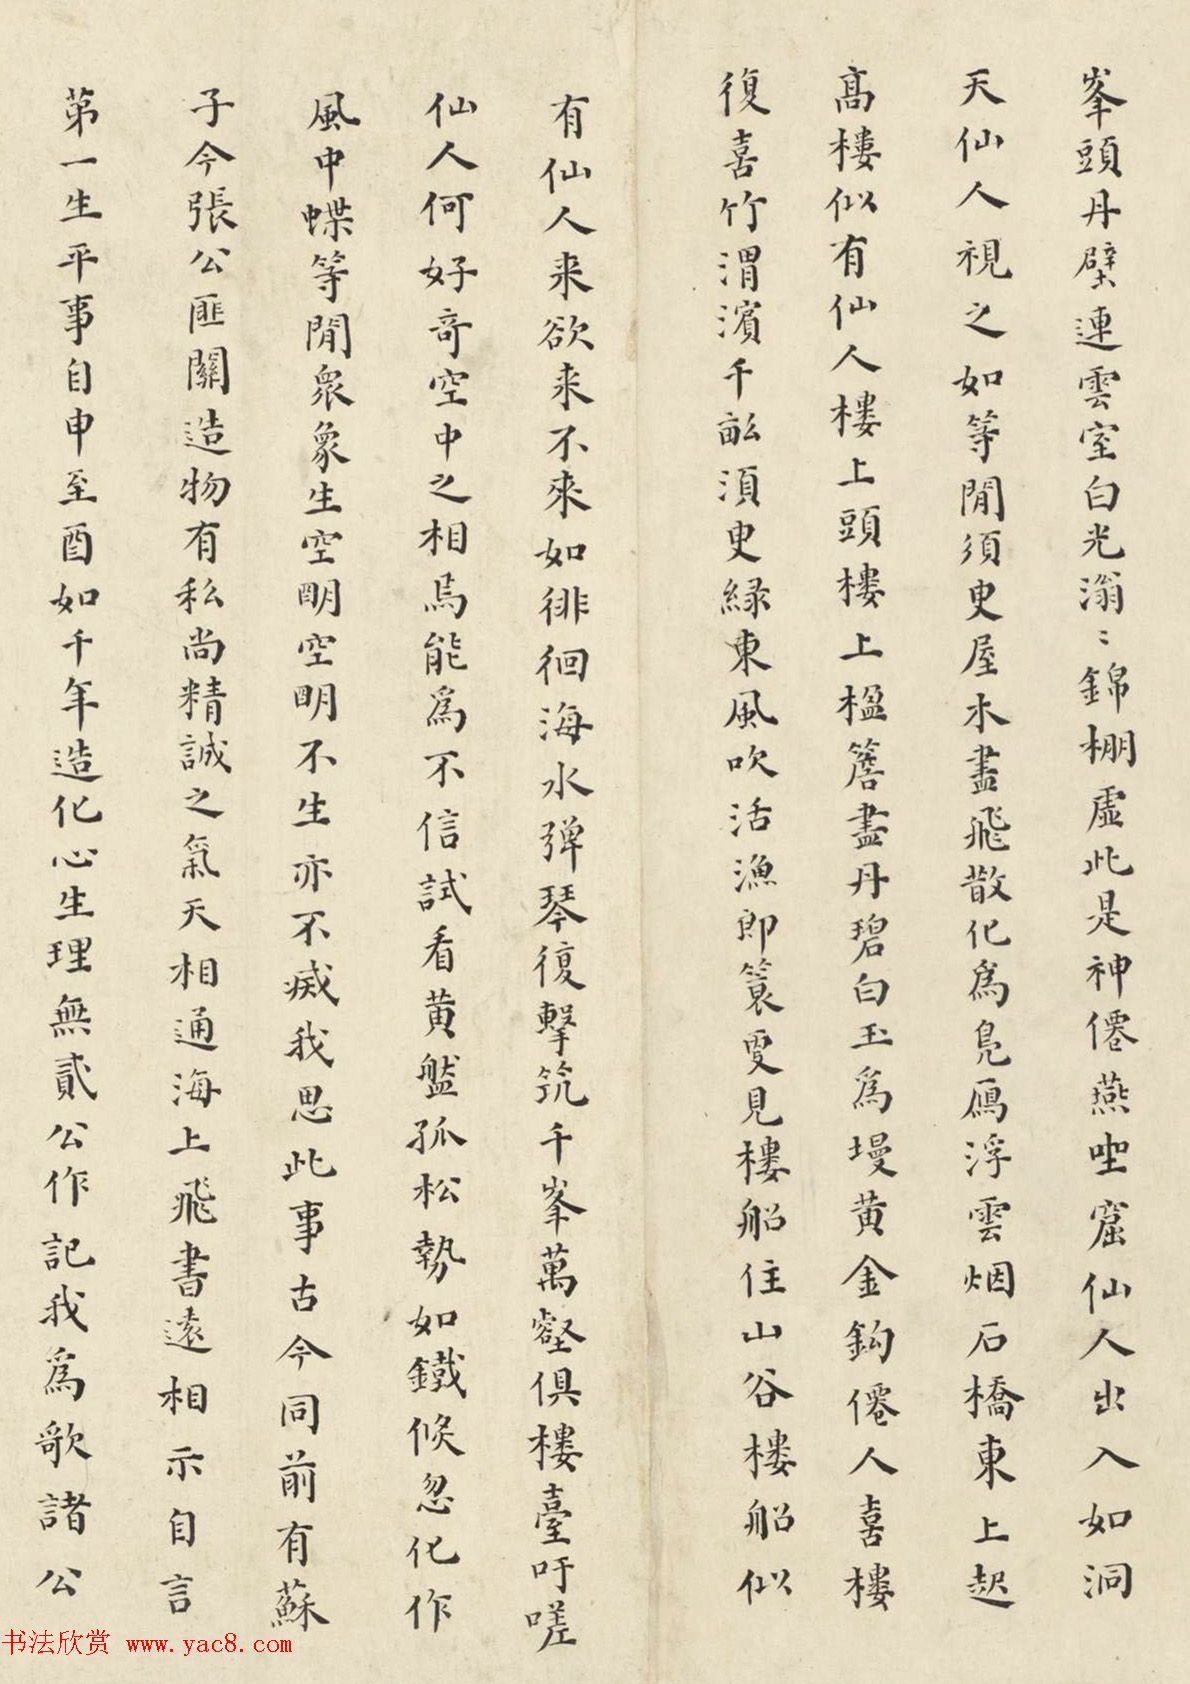 峯頭丹壁連雲室白光滃〻錦棚虛此是神僊燕坐窟仙人出入如洞
天仙人視之如等閒須臾屋木盡飛散化為鳧鴈浮雲烟石橋東上起
髙樓似有仙人樓上頭樓上楹簷盡丹碧白玉為墁黄金鈎僊人喜樓
復喜竹渭濱千畝湏臾緑東風吹活漁郎簑更見樓船住山谷樓船似
有仙人来欲来不來如徘徊海水弾琴復擊筑千峯萬壑俱樓臺吁嗟
仙人何好竒空中之相焉能為不信試看黄盤孤松勢如鐵倏忽化作
風中蝶等閒衆象生空明空明不生亦不滅我思此事古今同前有蘇
子今張公匪關造物有私尚精誠之氣天相通海上飛書遠相示自言
苐一生平事自申至酉如千年造化心生理無貳公作記我為歌諸公
书法欣赏 www.yac8.com